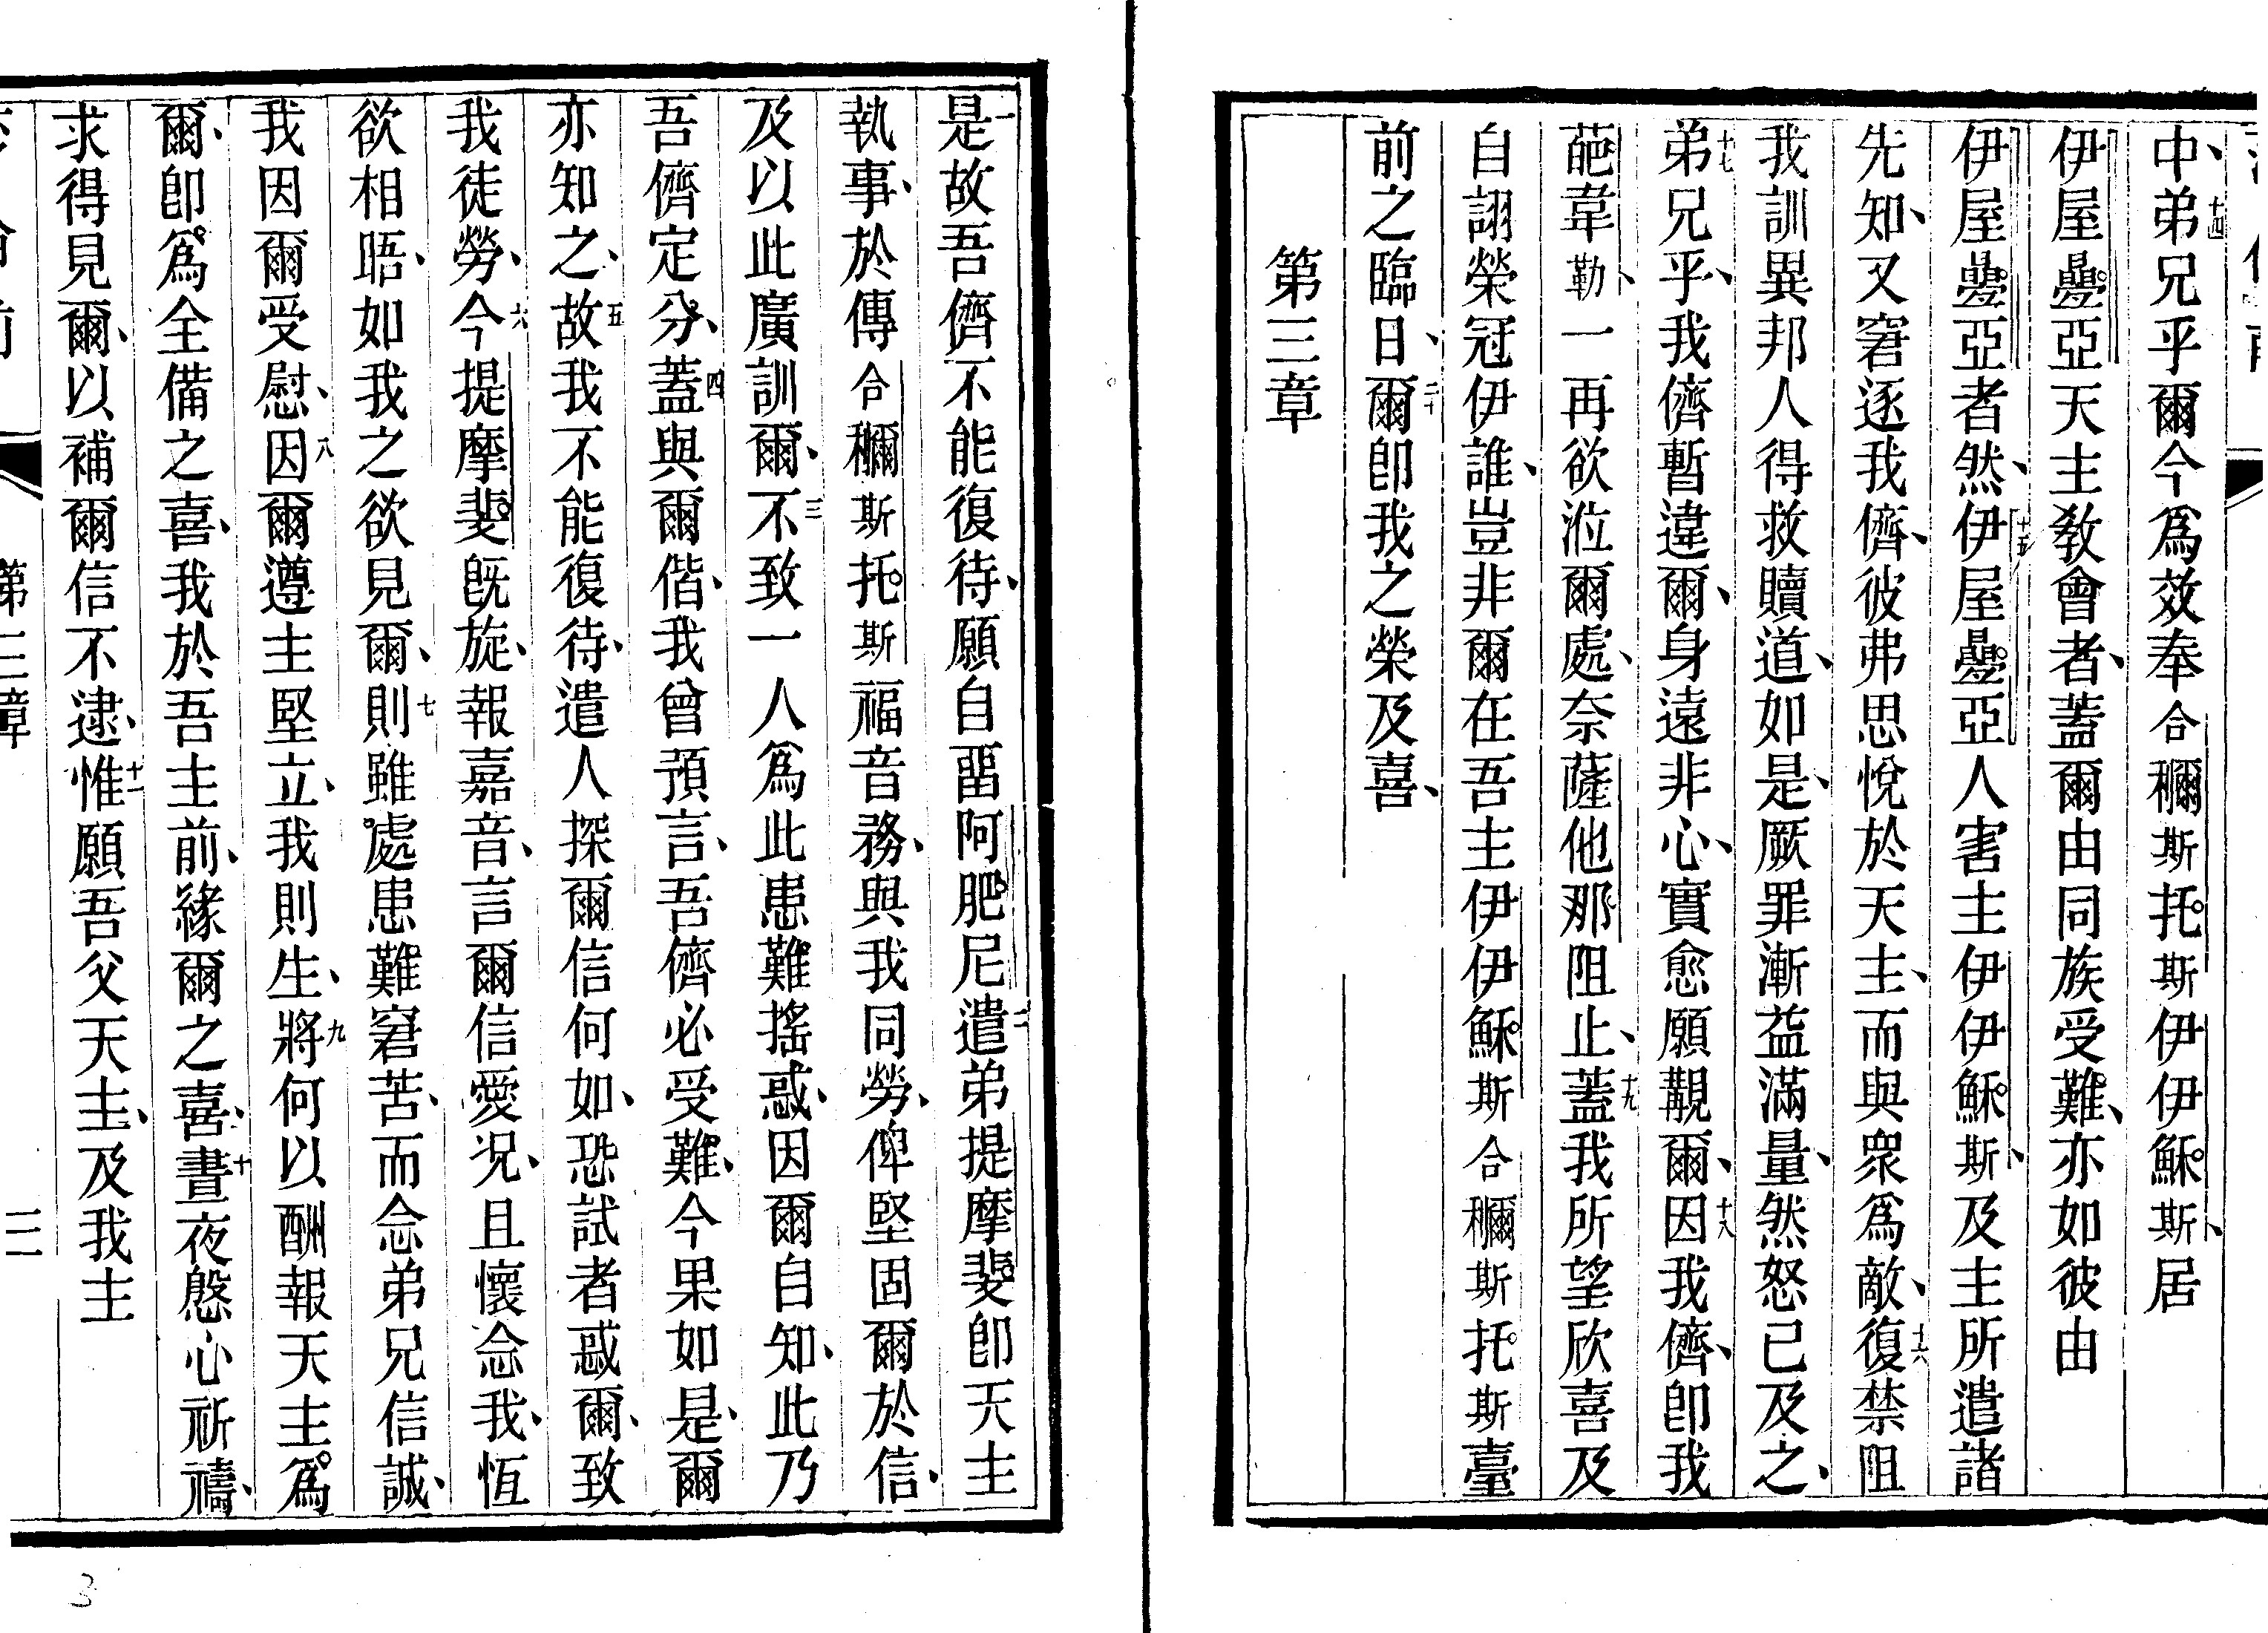 中、十四弟兄乎爾今爲效奉合穪斯托斯伊伊穌斯、居
伊屋疊亞天主敎會者、蓋爾由同族受難、亦如彼由
伊屋疊亞者然、十五伊屋疊亞人害主伊伊穌斯、及主所遣諸
先知、又窘逐我儕、彼弗思悅於天主、而與衆爲敵、十六復禁阻
我訓異邦人得救贖道、如是、厥罪漸益滿量、然怒已及之、
十七弟兄乎、我儕暫違爾、身遠非心、實愈願覩爾、十八因我儕、卽我
葩韋勒、一再欲涖爾處、奈薩他那阻止、十九蓋我所望欣喜及
自詡榮冠伊誰、豈非爾在吾主伊伊穌斯合穪斯托斯臺
前之臨日、二十爾卽我之榮及喜、
第三章
一是故吾儕不能復待、願自畱阿肥尼二遣弟提摩斐卽天主
執事、於傳合穪斯托斯福音務、與我同勞、俾堅固爾於信、
及以此廣訓爾、三不致一人爲此患難搖惑、因爾自知、此乃
吾儕定分、四蓋與爾偕、我曾預言、吾儕必受難、今果如是、爾
亦知之、五故我不能復待、遣人探爾信何如、恐試者惑爾、致
我徒勞、六今提摩斐旣旋、報嘉音、言爾信愛况、且懷念我、恆
欲相晤、如我之欲見爾、七則雖處患難窘苦、而念弟兄信誠、
我因爾受慰、八因爾遵主堅立、我則生、九將何以酬報天主爲
爾、卽爲全備之喜、我於吾主前、緣爾之喜、十晝夜慇心祈禱、
求得見爾、以補爾信不逮、十一惟願吾父天主、及我主
第三章
三
3